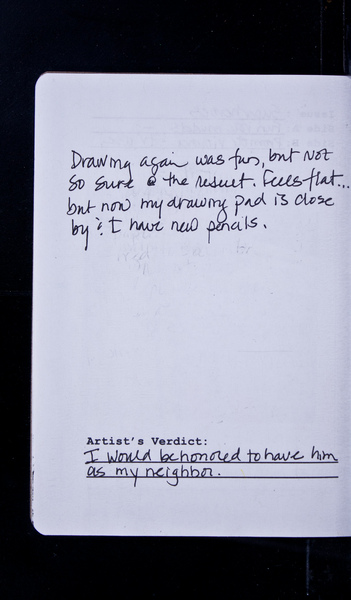 Drawing again was fun, but not
so sure @ the result. Feels flat...
but now my drawing pad is close
by & I have new pencils.
Artist's Verdict:
I would be honored to have him
as my neighbor.